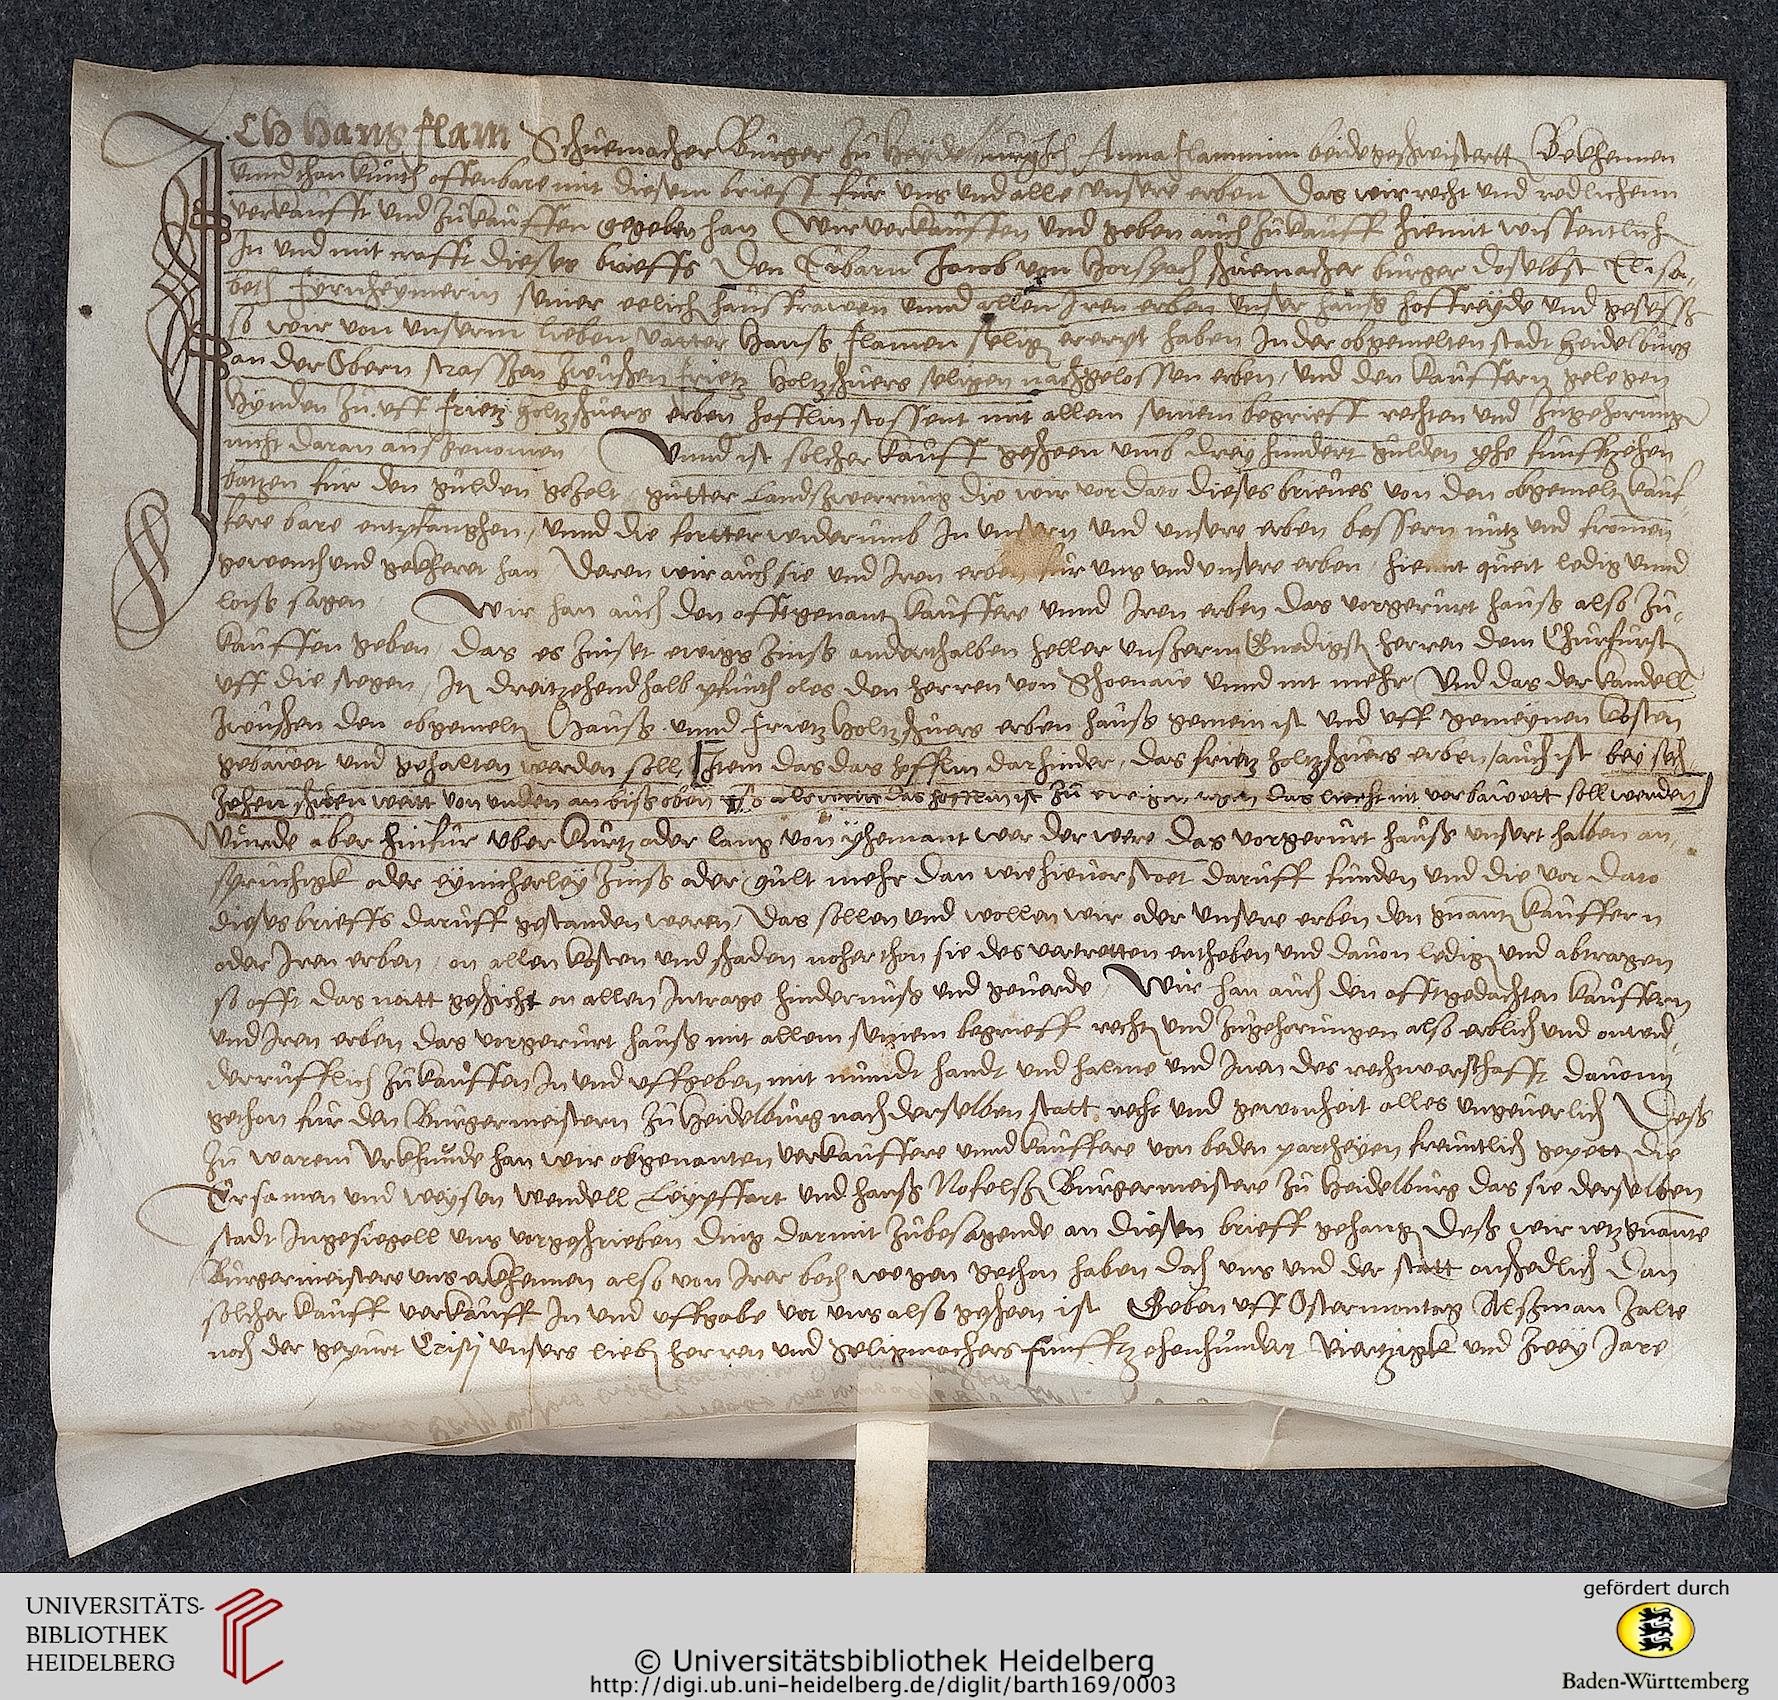 ICH Hans Flam Schuemacher Burger zu Anna Flammin beide geschwistertt Bekhennen
unnd thun kunth offenbare mit diesem brieff fur uns und alle unsere erben Das wir recht und redlichenn
verkaufft und zukauffen gegeben han Wir verkauffen und geben auch zukauff hiemit wissentlich
In und mit crafft dieses brieffs Den Erbarn Jacob von Horspach schuemacher burger doselbst Elisa-
beth seiner eelich haussfrawen unnd allen Iren erben unser hauss hoffreyde und gesesss
so wir von unserm lieben vatter Hanss Flamen selig ererpt haben In der obgemelten stadt Heidelburg
an der Obern strassen zwuschen Frietz Holtzschuers seligen nachgelossen erben, und den kauffern gelegen
hynden zu uff Frietz Holtzschuers erben hofflin stossent mit allem seinem begrieff rechten und zugehorung
nicht daran aussgenomen Unnd ist solcher kauff gescheen umb drey hundert gulden yhe funffzehen
batzen fur den gulden gezelt gutter Landsswerrung die wir vor dato dieses brieves von den obgemelt kauf-
fere bare entpfanghen, unnd die fortter widerumb In unsern und unsere erben bessern nutz und fromen
gewent und gekheret han Deren wir auch sie und Iren erben fur uns und unsere erben, hiemit queit ledig unnd
loiss sagen, Wir han auch den offtgenant kauffere unnd Iren erben das vorgerurt hauss also zu-
kauffen geben, das es zinset ewigs zinss anderthalben heller unserm Gnedigst herren dem Churfurst
uff die stegen, It dreitzehendhalb pfunth oles den herren von Schoenaw unnd nit mehr Und das der kandell
zwuschen den obgemelt Hauss unnd Frietz Holtzschuers erben hauss gemein ist und uff gemeynen kosten
gebawet und gehalten werden soll, Item das das hofflin darhinder, das frietz holtzschuers erben, auch ist bey sech-
zehen schuen weitt von unden an biss oben so das hofflin ist zu ewigen das liecht nit verbawett soll werden
Wurde aber hinfur uber kurtz oder lang von yhemant wer der were das vorgerurt hauss unsert halben an-
spruchigk oder eynicherley zinss oder gult mehr dan wie hievor stoet daruff funden und die vor dato
dieses brieffs daruff gestanden weren, Das sollen und wollen wir oder unsere erben den gnant kauffern
oder Iren erben, on allen kosten und schaden noher thon sie des vertretten entheben und davon ledig und abtragen
so offt das noitt geschicht on allen Intrage hindernuss und geverde, Wir han auch den offtgedachten kauffern
und Iren erben das vorgerurt hauss mit allem seinem begrieff recht und zugehorungen also erblich und onwid-
derrufflich zukauffen In und uffgeben, mit mundt handt und halme und Inen des rechwerschafft davonn
gethon fur den Burgermeistern zu Heidelburg nach derselben statt recht und gewonheit alles ungeverlich Dess
zu warem Urkhunde han wir obgenanten verkauffere unnd kauffere von beden partheyen freuntlich gepett die
Ersamen und weysen Wendell Leypffart und Hanss Burgermeistere zu Heidelburg das sie derselben
stadt Ingesiegell uns vorgeschrieben ding darmit zubesagende an diesen brieff gehang Dess wir itzgnante
Burgermeistere uns erkhennen also von Irer beth wegen gethon haben Doch uns und der statt onschedlich Dan
solcher kauff verkauff In und uffgabe vor uns also gescheen ist Geben uff Ostermontag Alssman zalte
noch der gepurt Cristi unsers lieb herren und seligmachers Funfftzehenhundert Viertzigk und zwey Jare
UNIVERSITÄTS-
BIBLIOTHEK
HEIDELBERG
© Universitätsbibliothek Heidelberg
http://digi.ub.uni-heidelberg.de/diglit/barth169/0003
gefördert durch
Baden-Württemberg